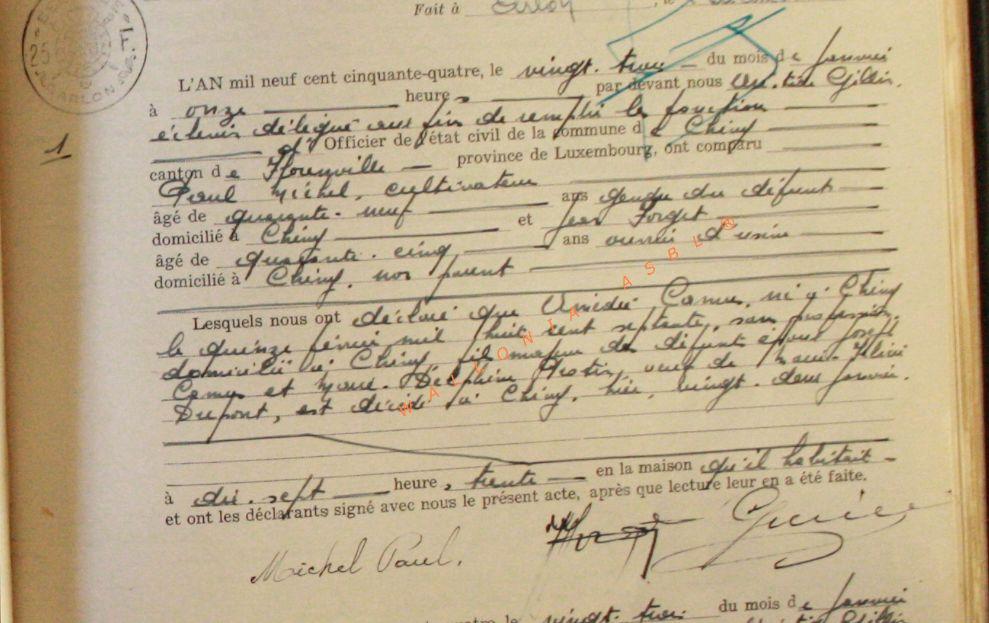 Fait à Arlon, le
L'AN mil neuf cent cinquante-quatre, le vingt-trois du mois de janvier
à onze heures par devant nous Gillin,
échevin délégué aux fin de remplir les fonction
d'Officier de l'état civil de la commune de Chiny
1
canton de Florenville province de Luxembourg, ont comparu
Paul Michel, cultivateur
âgé de quarante-neuf ans gendre du défunt
domicilié à Chiny et Jean Forget
âgé de quarante-cinq ans ouvrier d'usine
domicilié à Chiny, non parent
Lesquels nous ont déclaré que Amédée Camus, né à Chiny
le quinze février mil huit cent septante, sans profession,
domicilié à Chiny, fils majeur des défunts époux Joseph
Camus et Marie-Delphine, veuf de Marie
Dupont, est décédé à Chiny, hier, vingt-deux janvier,
à dix-sept heures trente en la maison qu'il habitait
et ont les déclarants signé avec nous le présent acte, après que lecture leur en a été faite.
Michel Paul.
WALLONIA ASBL ©
vingt-trois du mois de janvier